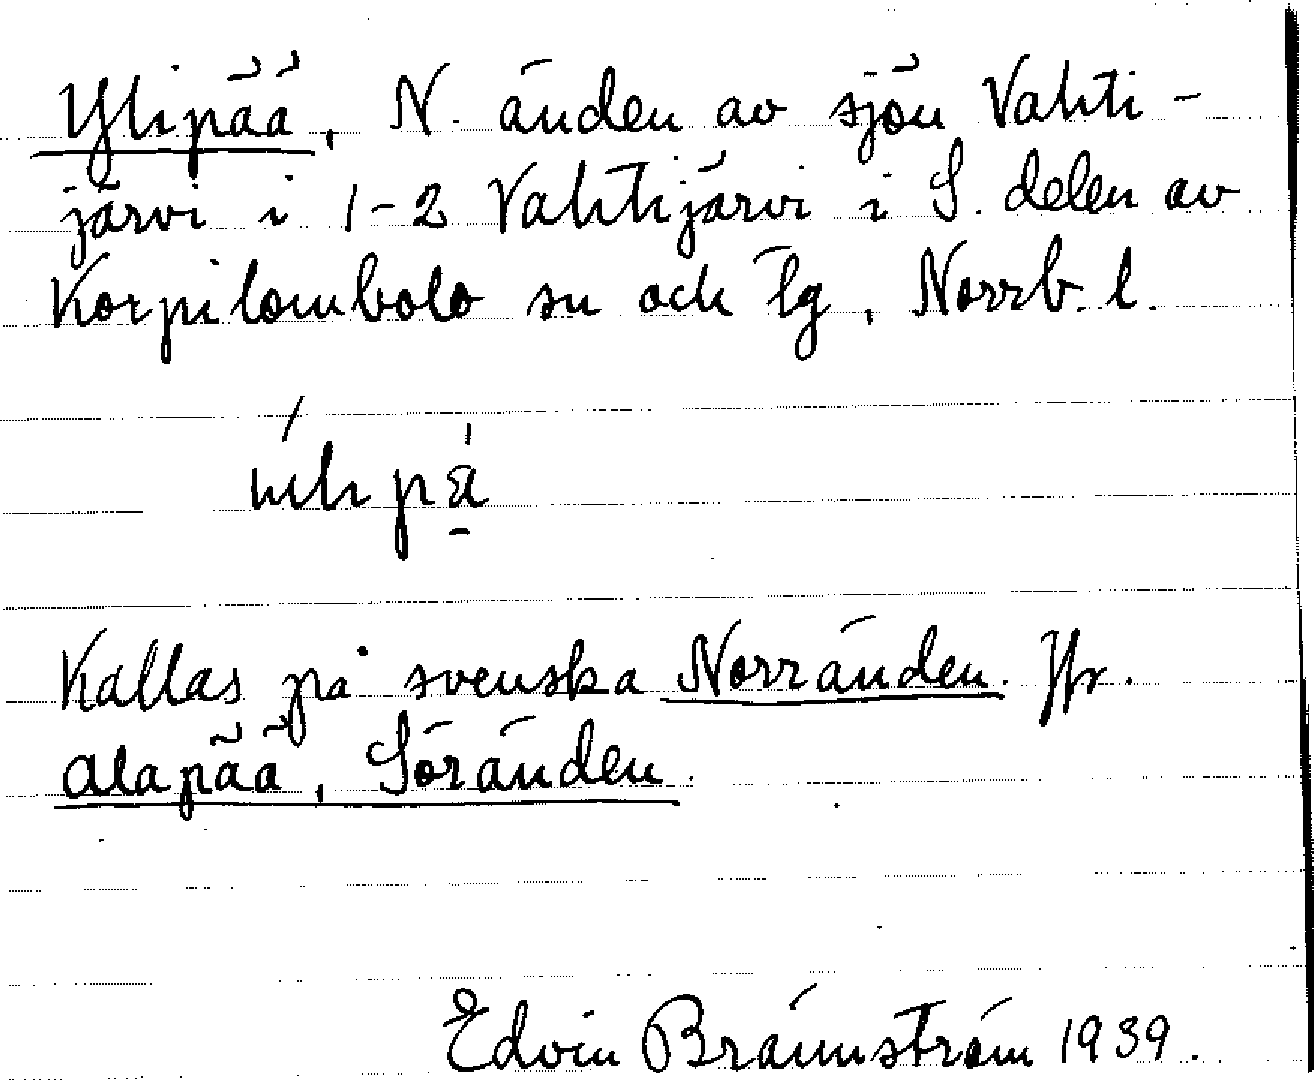 Ylipää, N. änden av sjön Vahti-
järvi i 1-2 Vahtijärvi i S. delen av
Korpilombolo sn och lg, Norrb. l.
Kallas på svenska Norränden. Jfr.
Alapää, Söränden.
Edvin Brännström 1939.